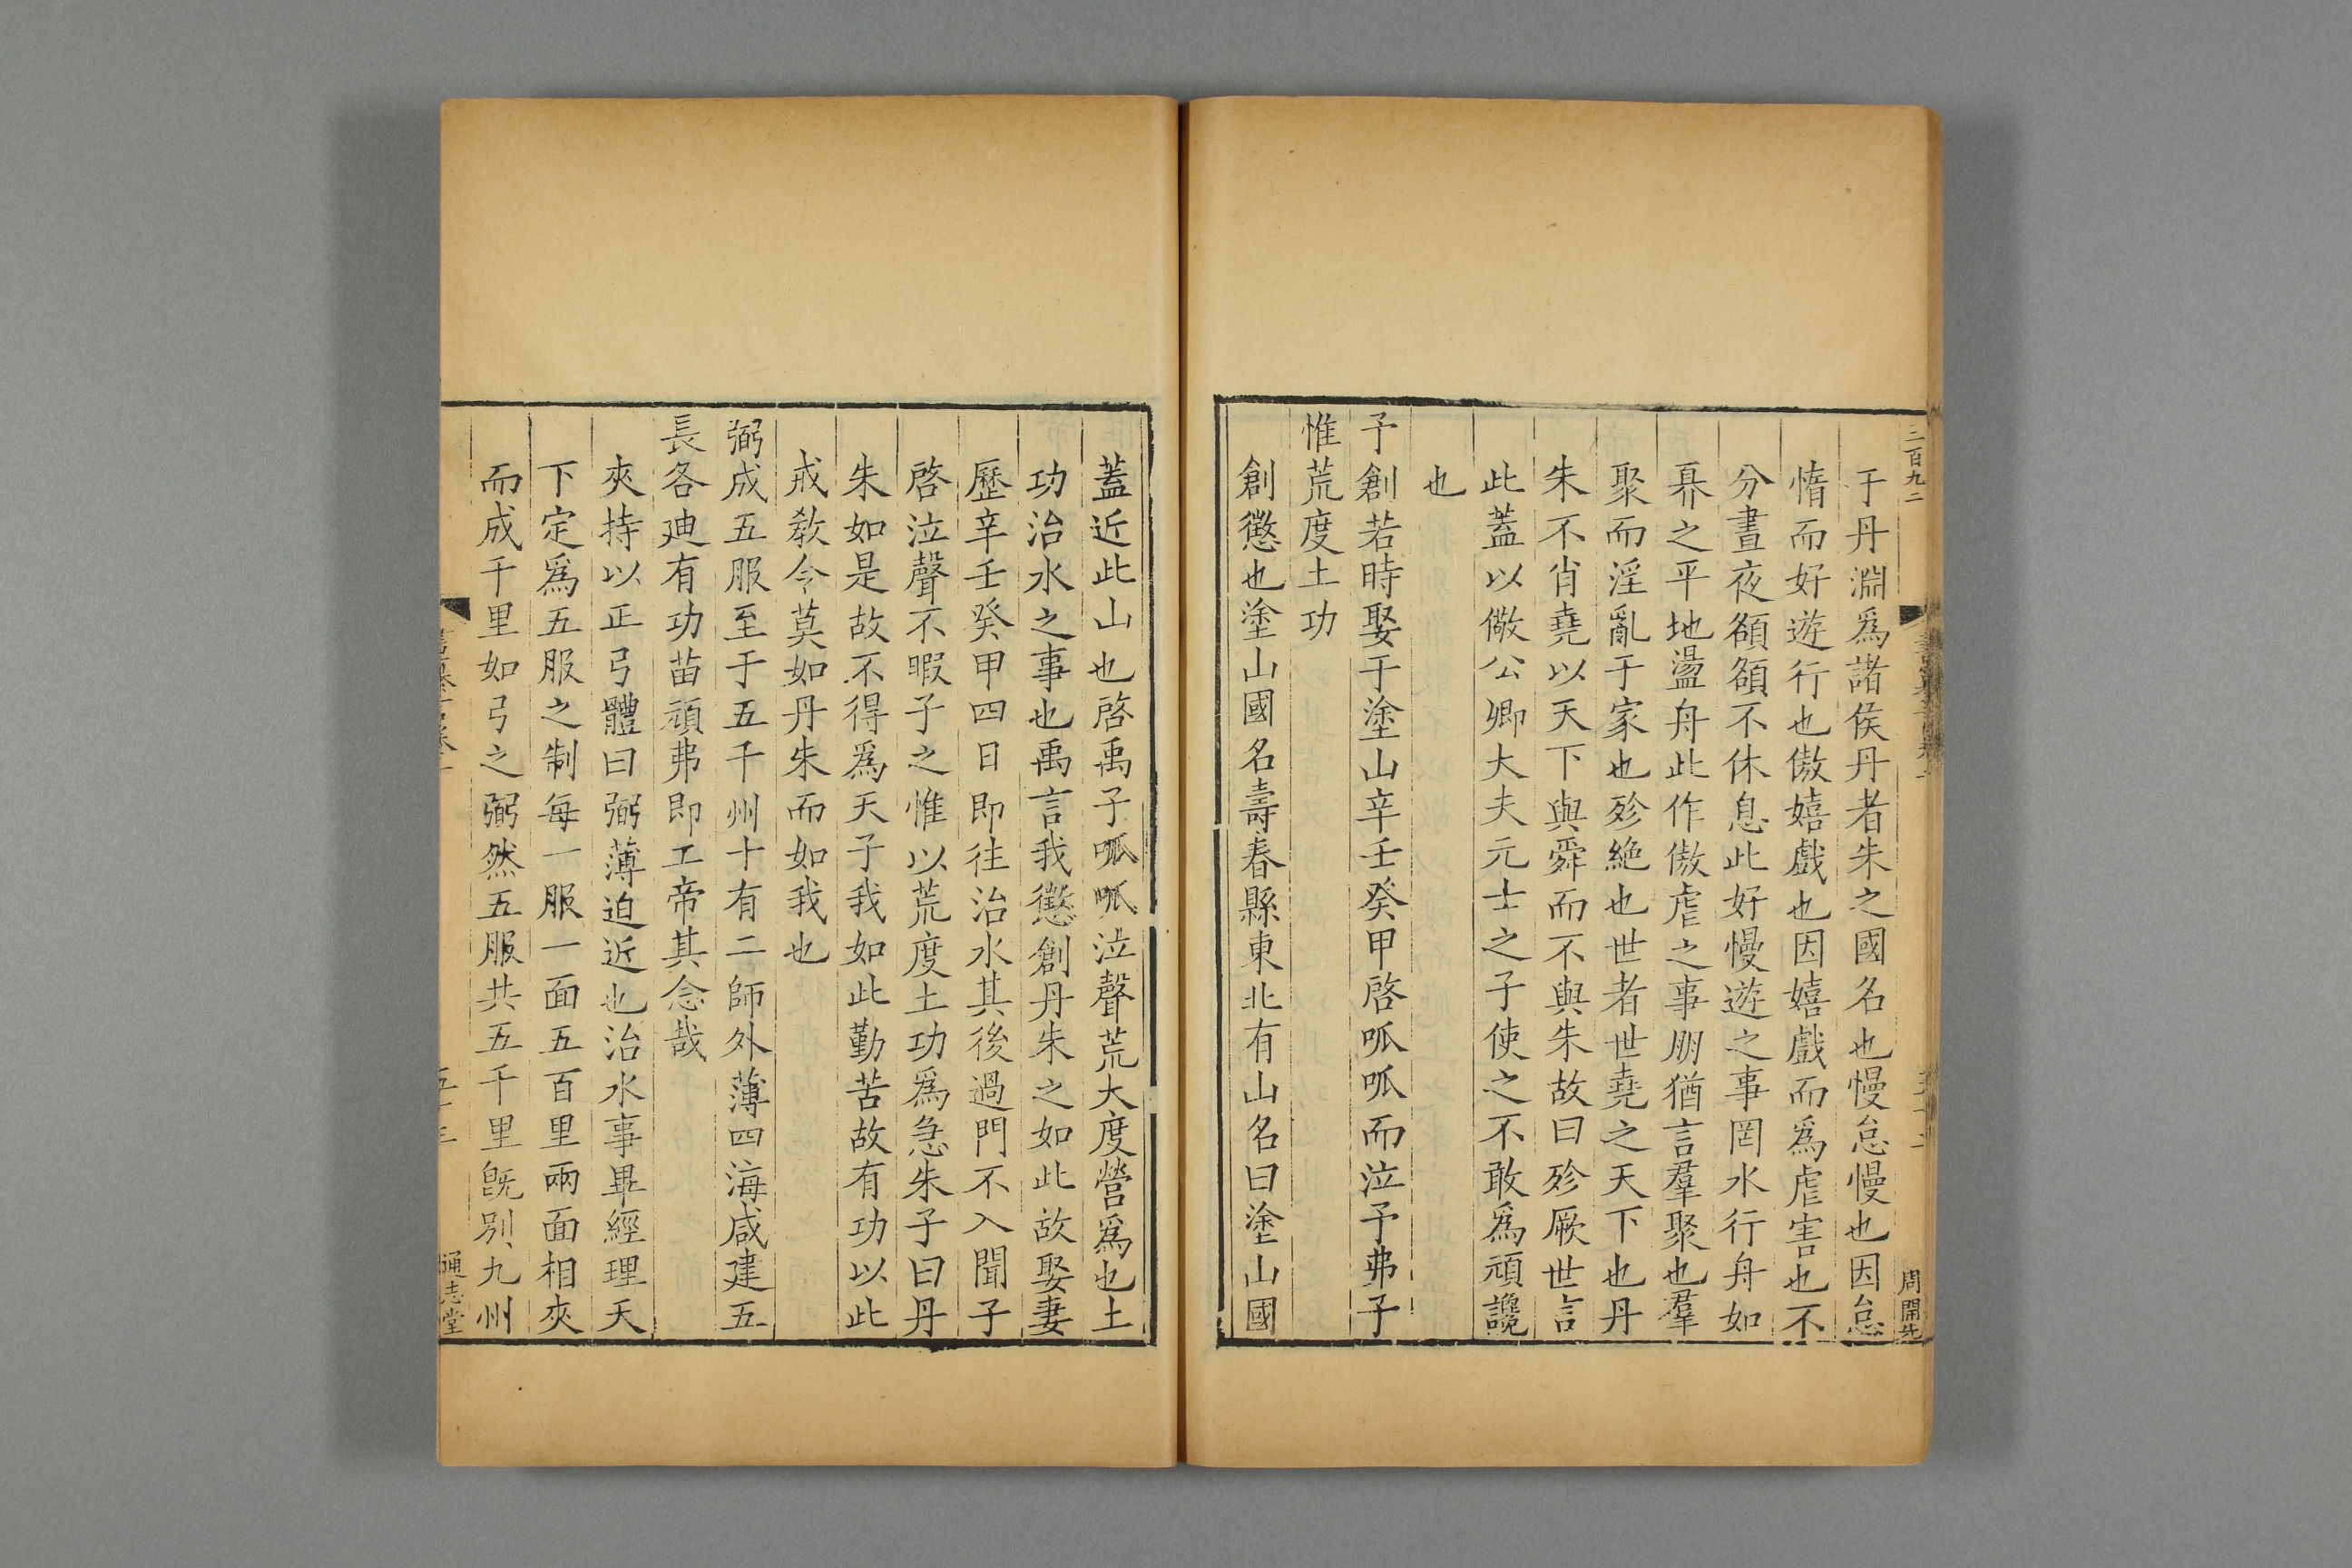 二百九二
周開先
于丹淵爲諸侯丹者朱之國名也慢怠慢也因怠
惰而好遊行也傲嬉戲也因嬉戲而爲虐害也不
分晝夜頟頟不休息此好慢遊之事罔水行舟如
奡之平地盪舟此作傲虐之事朋猶言羣聚也羣
聚而淫亂于家也殄絶也世者世堯之天下也丹
朱不肖堯以天下與舜而不與朱故曰殄厥世言
此蓋以儆公卿大夫元士之子使之不敢爲頑讒
也
予創若時娶于塗山辛壬癸甲啓呱呱而泣予弗子
惟荒度土功
創懲也塗山國名壽春縣東北有山名曰塗山國
蓋近此山也啓禹子呱呱泣聲荒大度營爲也土
功治水之事也禹言我懲創丹朱之如此故娶妻
歷辛壬癸甲四日即往治水其後過門不入聞子
啓泣聲不暇子之惟以荒度土功爲急朱子曰丹
朱如是故不得爲天子我如此勤苦故有功以此
戒敎令莫如丹朱而如我也
弼成五服至于五千州十有二師外薄四海咸建五
長各迪有功苗頑弗即工帝其念哉
夾持以正弓體曰弼薄迫近也治水事畢經理天
下定爲五服之制每一服一面五百里兩面相夾
而成千里如弓之弼然五服共五千里旣別九州
通志堂